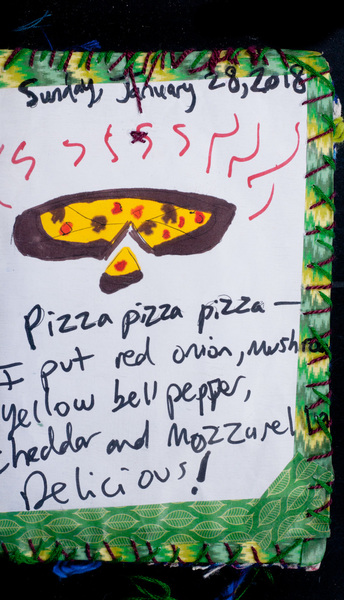 Sunday, January 28, 2018
Pizza pizza pizza —
I put red onion, mushro
yellow bell pepper,
cheddar and Mozzarel
Delicious!